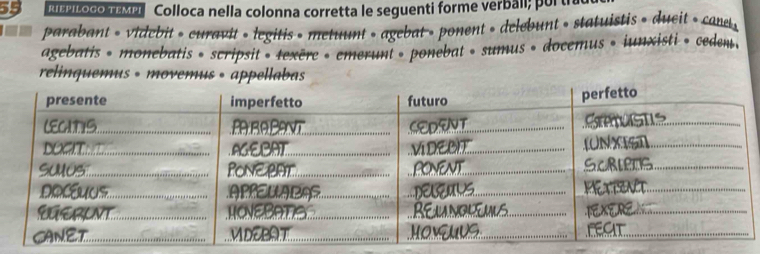 55 RIEPILOGO TEMPI Colloca nella colonna corretta le seguenti forme verbali; poi
parabant • videbit • curavit • legitis • metuunt • agebat • ponent • delebunt • statuistis • ducit • canet
agebatis • monebatis • scripsit • texēre • emerunt • ponebat • sumus • docemus • iunxisti • cedent
relinquemus • movemus • appellabas
presente imperfetto futuro perfetto
LEGITIS PARABANT CEDENT STATUISTIS
DUCIT AGEBAT VIDEBIT IUNXISTI
SUMUS PONEBAT PONENT
DOCEMUS APPELLABAS
MONEBATIS RELINQUEMUS TEXERE
CANET VIDEBAT MOVEMUS FECIT